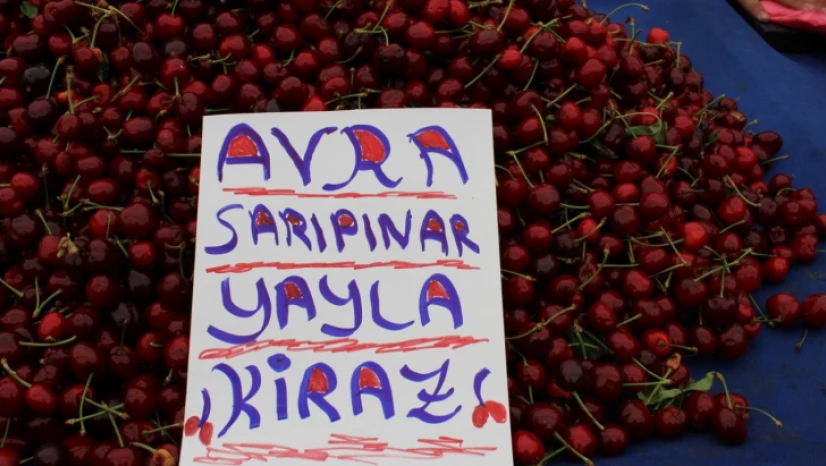 AVRA
SARIPINAR
YAYLA
KİRAZ